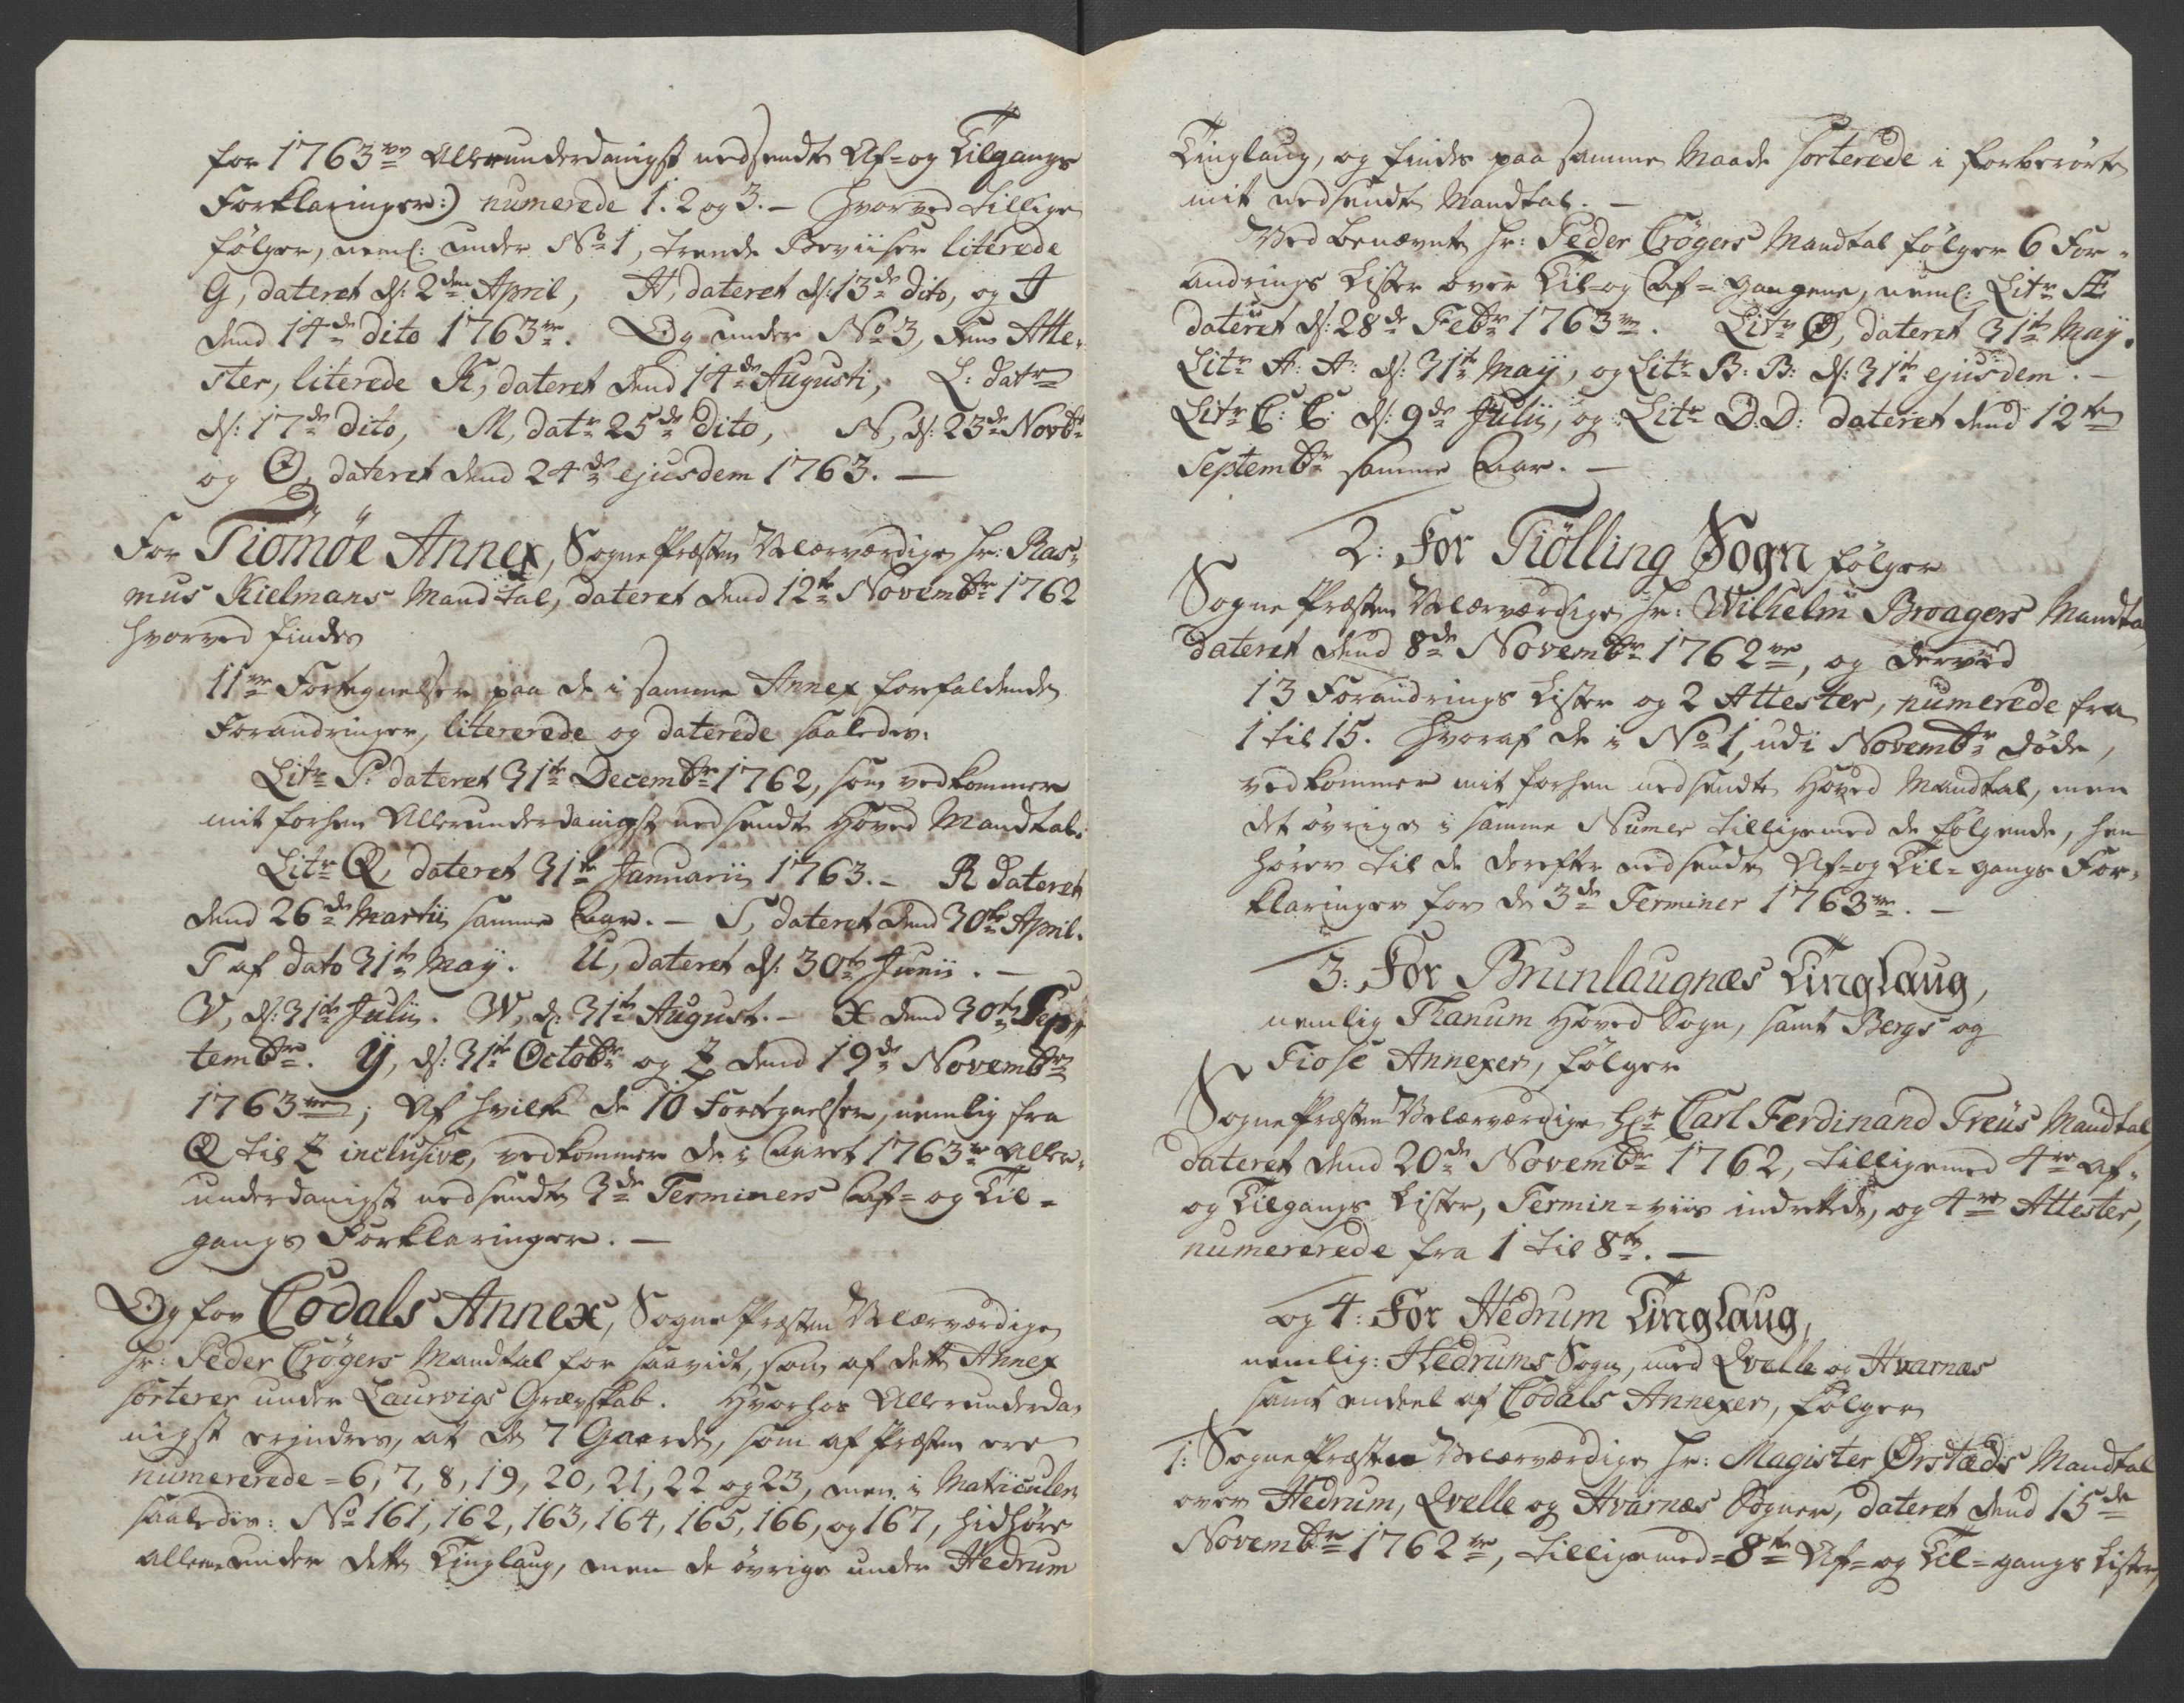 for 1763ve Allerunderdanigst nedsendte Af- og Tilgangs
Forklaringer:) numerede 1. 2 og 3. – Hvorved tillige
følger, neml: under No 1, trende Beviiser literede
G, dateret d: 2den April, H, dateret d: 13de dito, og I
dend 14de dito 1763ve. Og under No 3, Fem Atte-
ster, literede K, dateret dend 14de Augusti, L: datr
d: 17de dito, M, datr 25de dito, N, d: 23de Novbr
og O, dateret dend 24de ejusdem 1763. –
For Tiømøe Annex, Sogne Præsten Velærværdige Hr: Ras-
mus Kielmans Mandtal, dateret dend 12te Novembr 1762
hvorved findes
11ve Fortegnelser paa de i samme Annex forefaldende
Forandringer, litererede og daterede saaledes:
Litr P: dateret 31te Decembr 1762, som vedkommer
mit forhen Allerunderdanigst nedsendte Hoved Mandtal.
Litr Q, dateret 31te Januarii 1763. – R dateret
dend 26de Martii samme Aar. – S, dateret dend 30te April.
T af dato 31te Maij. U, dateret d: 30te Junii. –
V, d: 31te Julii. W, d: 31te August. – X dend 30te Sep-
tembr. Y, d: 31te Octobr og Z dend 19de Novembr
1763ve; Af hvilke de 10 Fortegnelser, nemlig fra
Q til Z inclusive, vedkommer de i Aaret 1763ve Aller-
underdanigst nedsendte 3de Terminers Af- og Til-
gangs Forklaringer. –
Og for Codals Annex, Sogne Præsten Velærværdige
Hr: Peder Crøgers Mandtal for saavidt, som af dette Annex
sorterer under Laurvigs Grævskab. Hvorhos Allerunderda-
nigst erindres, at de 7 Gaarde, som af Præsten ere
numererede = 6, 7, 8, 19, 20, 21, 22 og 23, men i Matriculen
saaledes: No 161, 162, 163, 164, 165, 166, og 167, hidhøre
allene under dette Tinglaug, men de øvrige under Hedrum
Tinglaug, og findes paa samme Maade sorterede i forberørte
mit nedsendte Mandtal. –
Ved benævnte Hr: Peder Crøgers Mandtal følger 6 For-
andrings Lister over Til- og Af-gangene, neml: Litr Æ
dateret d: 28de Febr 1763ve. Litr Ø, dateret 31te Maij.
Litr A: A: d: 31te Maij, og Litr B: B: d: 31te ejusdem. –
Litr C: C: d: 9de Julii, og Litr D: D: dateret dend 12te
Septembr samme Aar. –
2: For Tiølling Sogn følger
Sogne Præsten Velærværdige Hr: Wilhelm Broagers Mandtal
dateret dend 8de Novembr 1762ve, og derved
13 Forandrings Lister og 2 Attester, numerede fra
1 til 15. Hvoraf de i No 1, udi Novembr døde,
vedkommer mit forhen nedsendte Hoved Mandtal, men
det øvrige i samme Numer tilligemed de følgende, hen
hører til de derefter nedsendte Af- og Til-gangs For-
klaringer for de 3de Terminer 1763ve. –
3: For Brunlaugnæs Tinglaug,
nemlig Tanum Hoved Sogn, samt Bergs og
Tiose Annexer, følger
Sogne Præsten Velærværdige Hr Carl Ferdinand Treus Mandtal
dateret dend 20de Novembr 1762, tilligemed 4re Af-
og Tilgangs Lister, Termin-viis indrettede, og 4re Attester,
numererede fra 1 til 8te. –
og 4: For Hedrum Tinglaug,
nemlig: Hedrums Sogn, med Qvelle og Hvarnæs
samt endeel af Codals Annexer, følger
1: Sogne Præsten Velærværdige Hr: Magister Ørstæds Mandtal
over Hedrum, Qvelle og Hvarnæs Sogner, dateret dend 15de
Novembr 1762ve, tilligemed = 8te Af- og Til-gangs Lister,